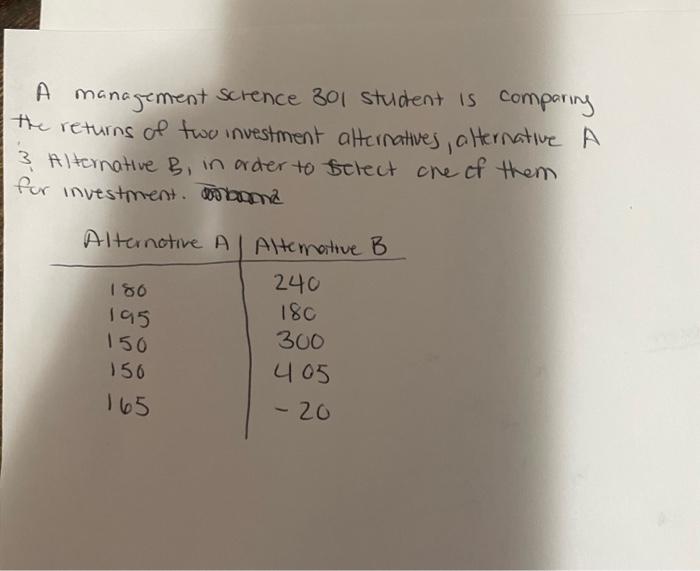 A management science 301 student is comparing
the returns of two investment alternatives, alternative A
& Alternative B, in order to select one of them
for investment.
Alternative A | Alternative B
180 240
195 180
150 300
150 405
165 -20